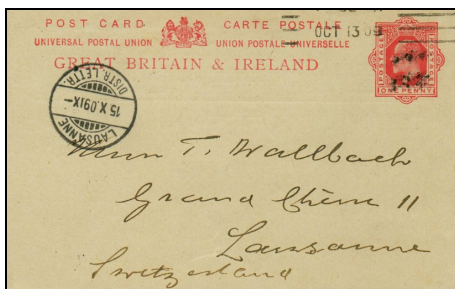 POST CARD CARTE POSTALE
UNIVERSAL POSTAL UNION UNION POSTALE UNIVERSELLE
GREAT BRITAIN & IRELAND
OCT 13 09
POSTAGE
ONE PENNY
LAUSANNE
15 X.09 IX-
DISTR. LETTR.
T. Wallbach
Grand Chêne 11
Lausanne
Switzerland